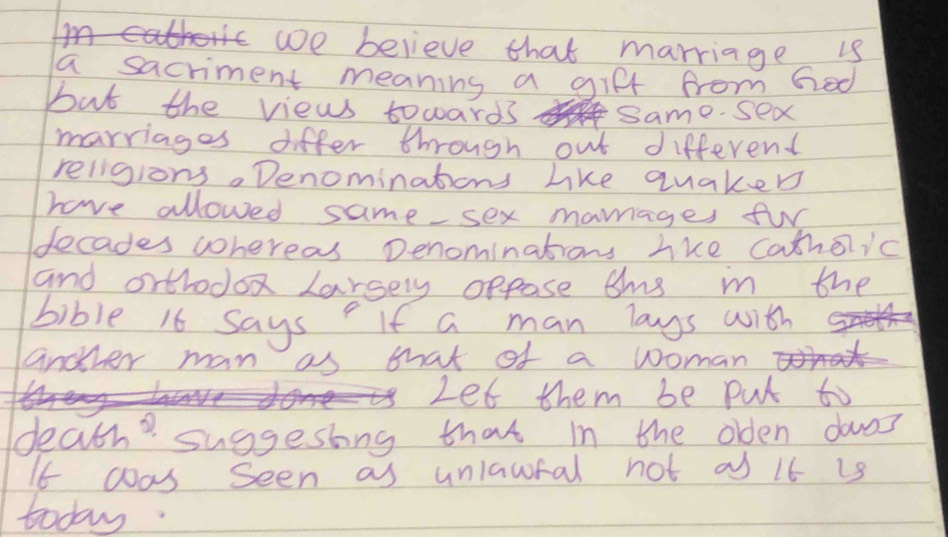 In catholic we believe that marriage is
a sacriment meaning a gift from God
but the views towards same-sex
marriages differ through out different
religions. Denominations like quakers
have allowed same-sex marriages for
decades whereas Denominations like catholic
and orthodox largely oppose this in the
bible it says "if a man lays with
another man as that of a woman what
they have done is Let them be put to
death" suggesting that in the olden days
it was seen as unlawful not as it is
today.